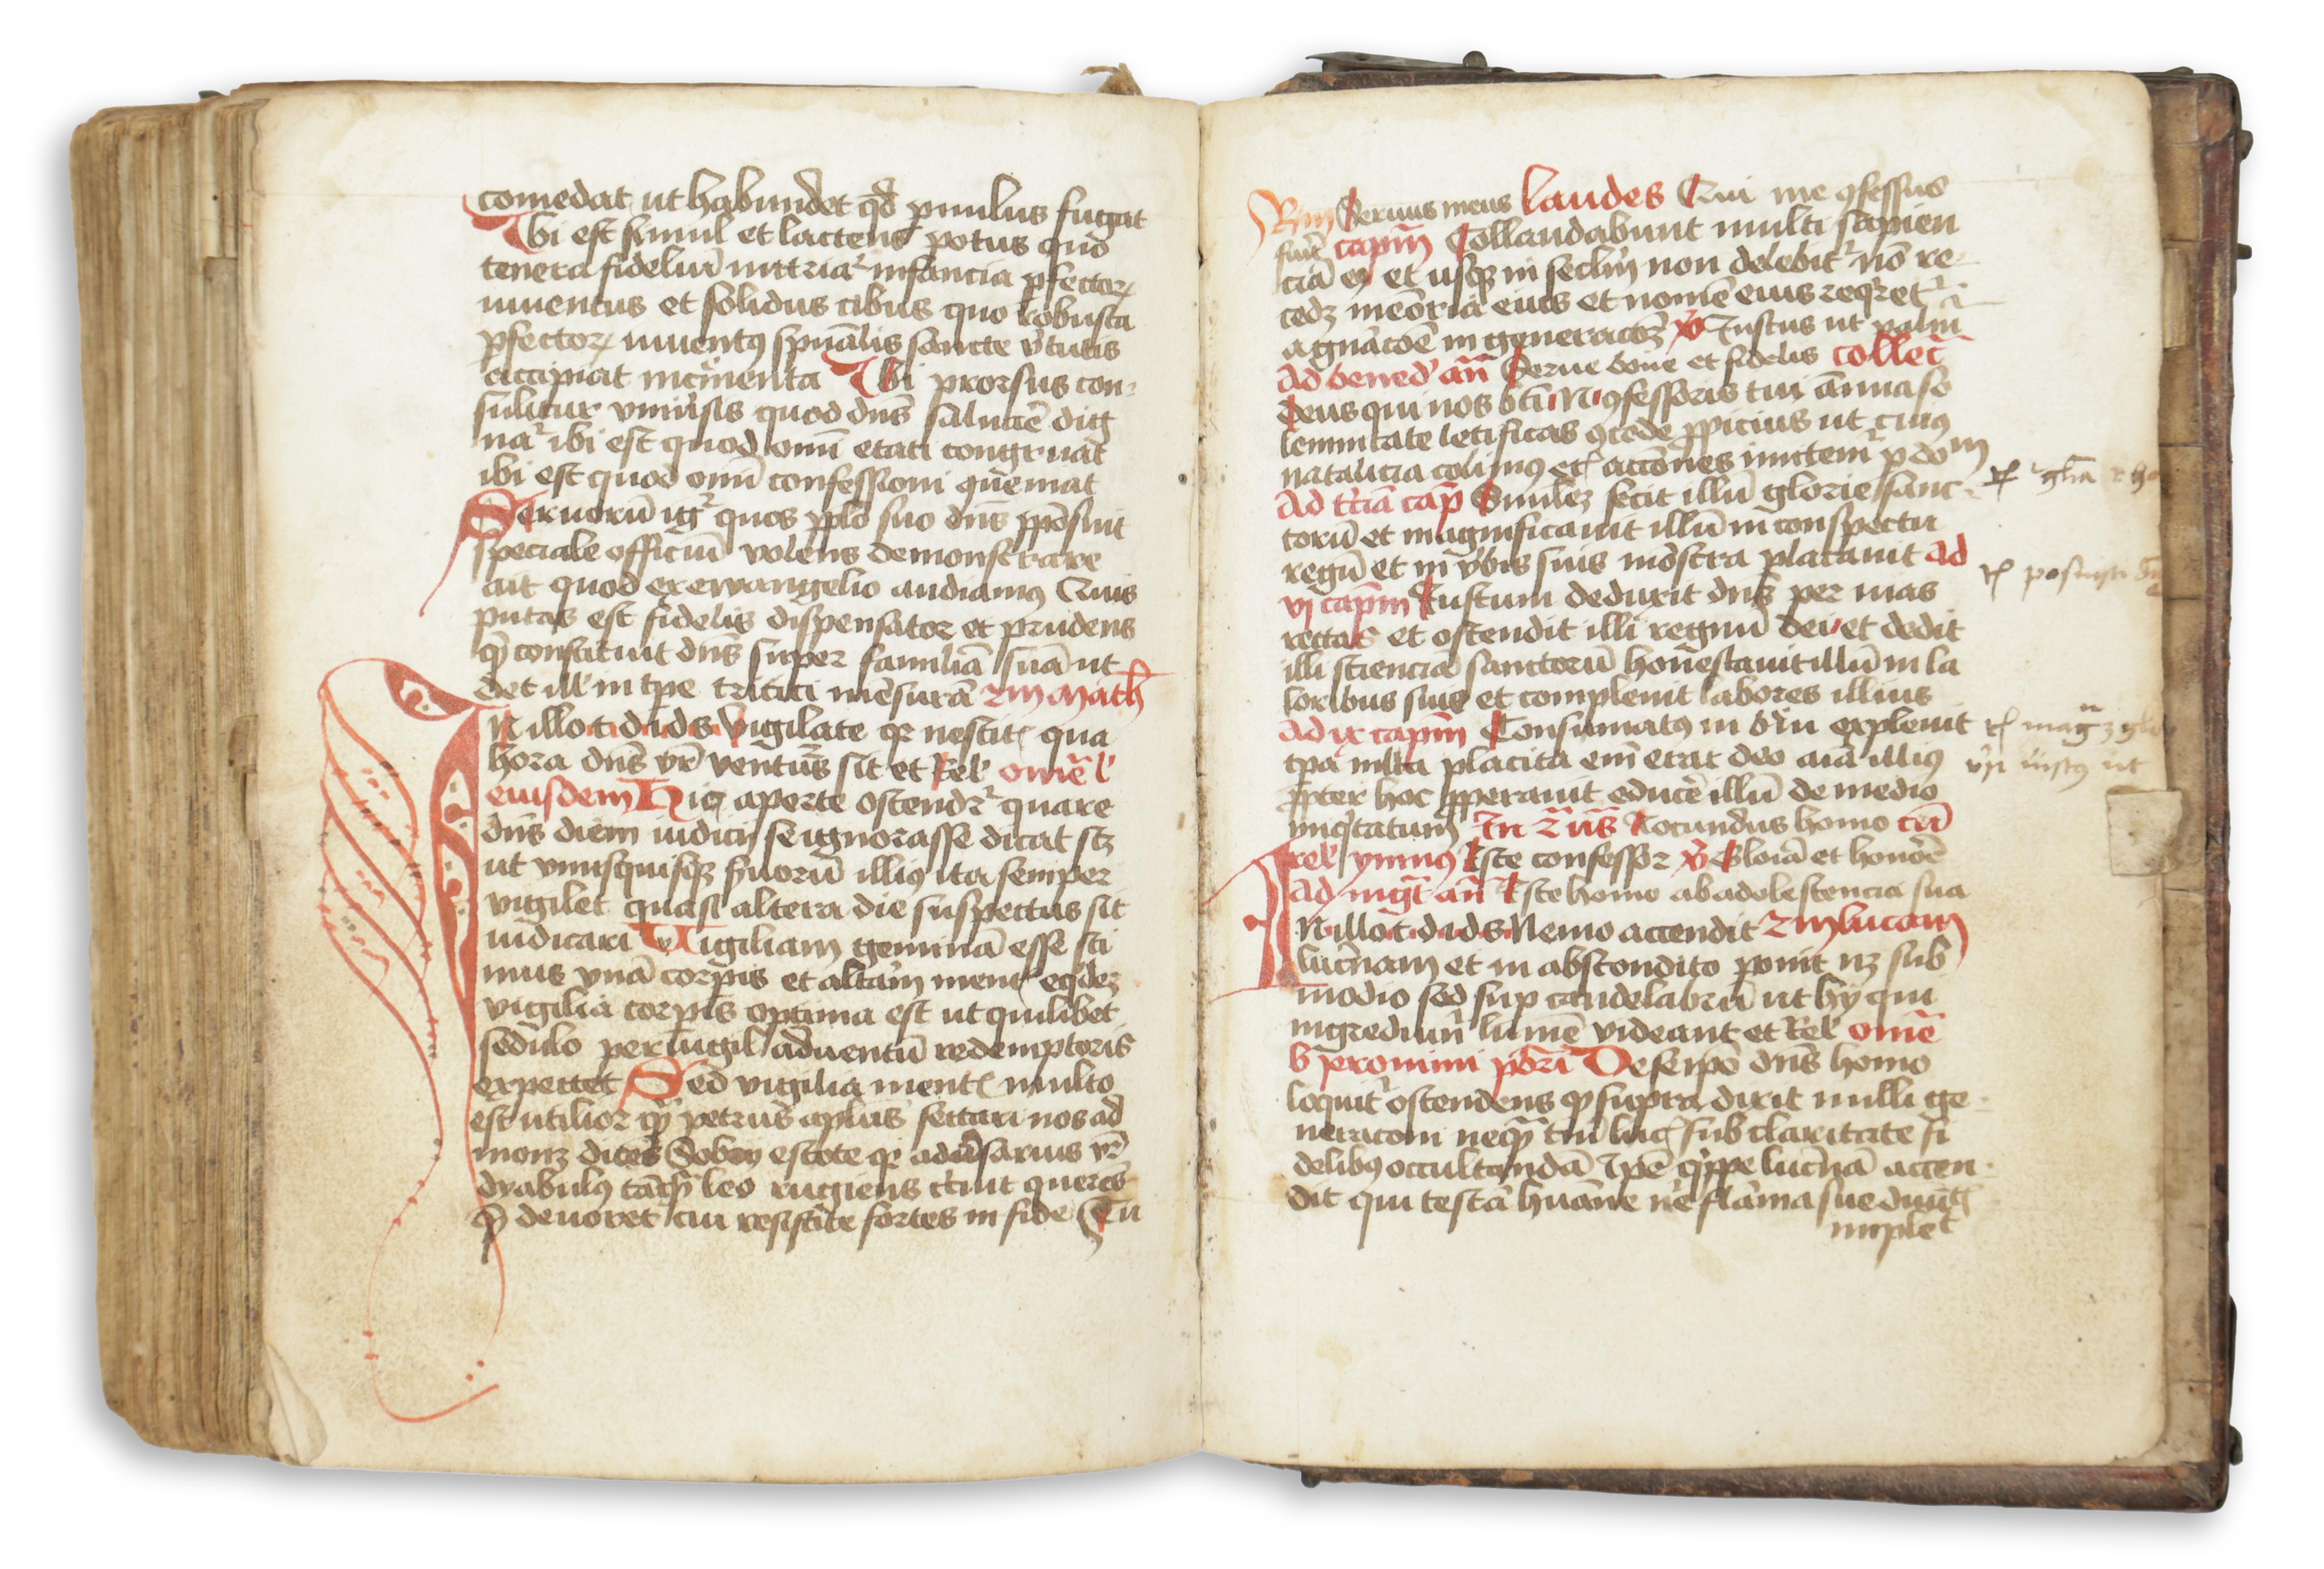 comedat ut habundet qd paulus fugat
Ubi est simul et lactens potus quo
tenera fideliū nutriat᷑ infancia pfector᷑
iuuentus et solidus cibus quo robusta
pfector᷑ iuuentꝯ spūalis sancte v̓tutis
accipiat incr̄menta Ubi prorsus con-
sulitur vniūsis quod dn̄s salutē dig
nat᷑ ibi est quod omī etati congruat
ibi est quod omī confessioni queniat
Seruorū igr̄ quos pplo suo dn̄s ppōsuit
speciale officiū volens demonstrare
ait quod ex ewangelio audiamꝯ Quis
putas est fidelis dispensator et prudens
quē constituit dn̄s super familiā suā ut
det ill' in tpe tritici mēsurā 2m math
N illo t d ids Vigilate qr nescitꝭ qua
hora dn̄s vr̄ ventur̄ sit et Rel' omēl'
eiusdem Hiꝯ aperte ostendit᷑ quare
dn̄s diem iudicij se ignorasse dicat scꝫ
ut vnusquisqꝫ suorū illiꝯ ita semper
vigilet quasi altera die suspectus sit
iudicari Vigiliam geminā esse sci
mus vnā corpis et altām mentꝭ eqdeꝫ
vigilia corpis optima est ut quilibet
sedulo peruigil aduentū redemptoris
expectet Sed vigilia mentꝭ multo
est utilior quā petrus aplūs sectari nos ad
monꝫ dicēs Sobrij estote qr aduersarius vr̄
dyabulꝯ tāqꝫ leo rugiens circuit querēs
quē deuoret cui resistite fortes in fide Tu
Rm Seruus meus laudes Qui me ꝯfessus
fuerit capm̄ Collaudabunt multi sapien
ciā eiꝯ et usqꝫ in seclm̄ non delebit᷑ nō re-
cedꝫ meōria eius et nomē eius reqret᷑ a
agnācōē in generacōꝫ v̄ Iustus ut palm
Ad bened' an̄ Serue bone et fidelis collec̄
Deus qui nos btī N ꝯfessoris tui ānua so
lemnitate letificas ꝯcede ppicius ut cuiꝯ
natalicia colimꝯ etꝭ acciōnes imitemr̄ p dom
Ad t̓ciā cap̄ Similez fecit illū glorie sanc-
torū et magnificauit illū in conspectu
regū et in v̓bis suis mōstra placauit Ad
vj capm̄ Iustum deduxit dn̄s per uias
rectas et ostendit illi regnū dei et dedit
illi scienciā sanctorū honestauit illū in la
boribus suis et compleuit labores illius
Ad ix capm̄ Consumatꝯ in breui expleuit
tpa multa placita em̄ erat deo aīa illiꝯ
ppter hoc pperauit educē illū de medio
iniqtatum In 2 us̄ Iocundus homo cū
rel' ymnꝯ Iste confessor v̄ Gloiā et honōē
Ad mgt an̄ Iste homo ab adolescencia sua
N illo t d ids Nemo accendit 2m lucam
lucernam et in abscondito ponit nꝫ sub
modio sed sup candelabrū ut hij qui
ingrediunt̄ lumē videant et Rel' omē
b jeronimi pbrī De se ipō dn̄s homo
loquit᷑ ostendens ꝙ supra dixit nulli ge-
neracōni nequā tm̄ lucꝭ sub claritate fi
delibꝯ occultandā Ipē qppe lucernā accen-
dit qui testā huāne nre flāma sue diuītꝭ
implet